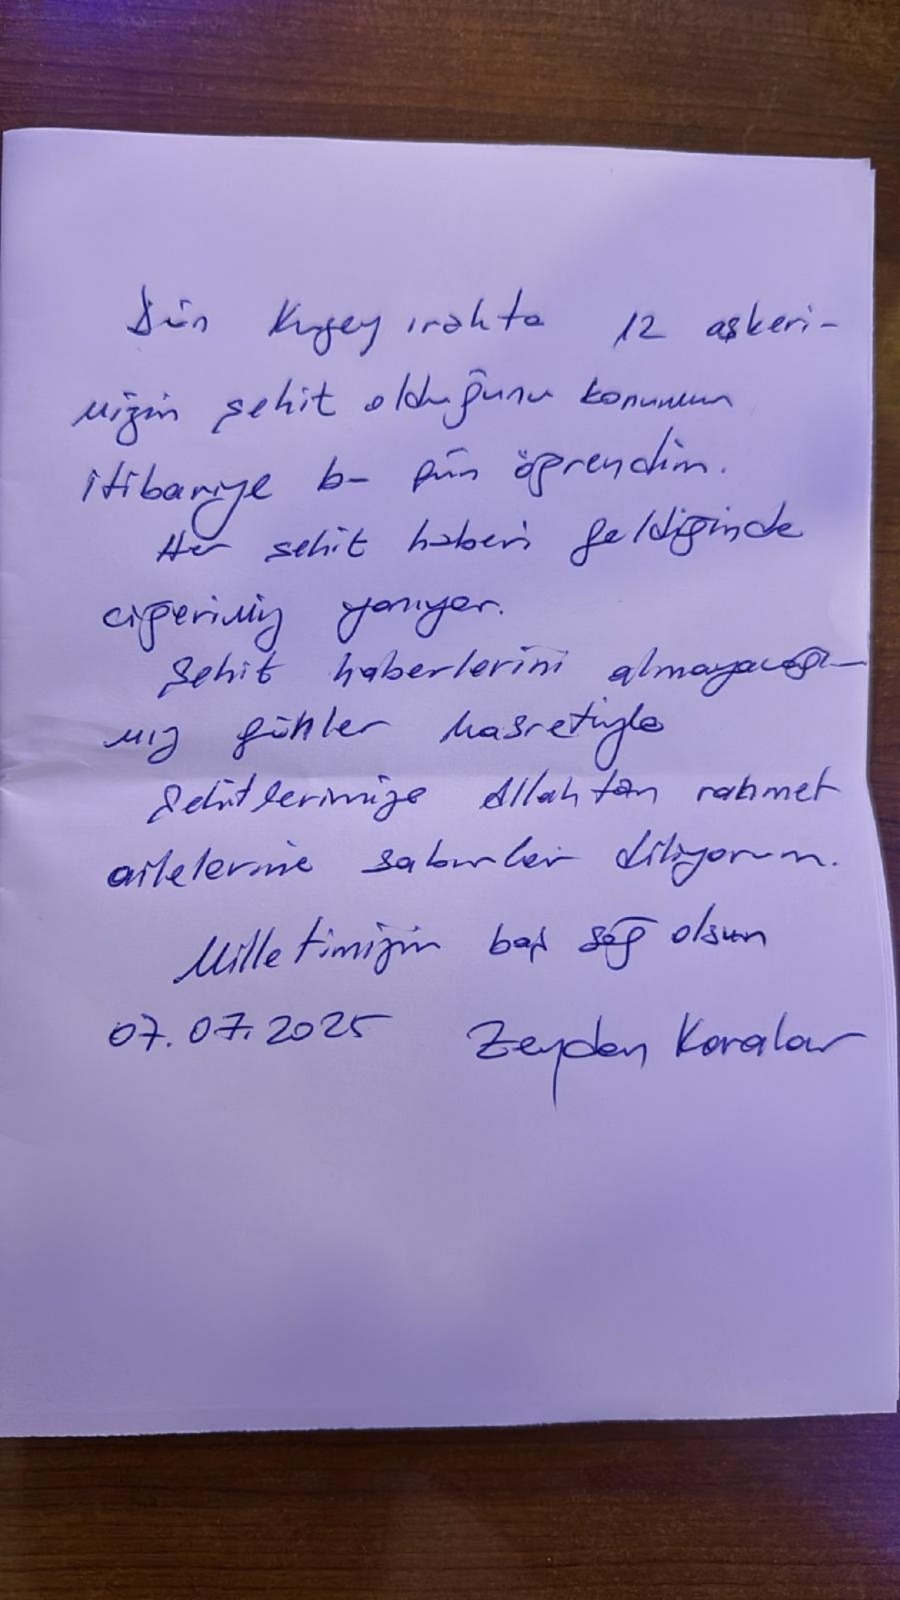 Dün Kuzey ırakta 12 askeri-
mizin şehit olduğunu konumum
itibariyle bu gün öğrendim.
Her şehit haberi geldiğinde
ciğerimiz yanıyor.
Şehit haberlerini almayacağı-
mız günler hasretiyle
Şehitlerimize Allahtan rahmet
ailelerine sabırlar diliyorum.
Milletimizin baş sağ olsun
07.07.2025 Zeydan Karalar